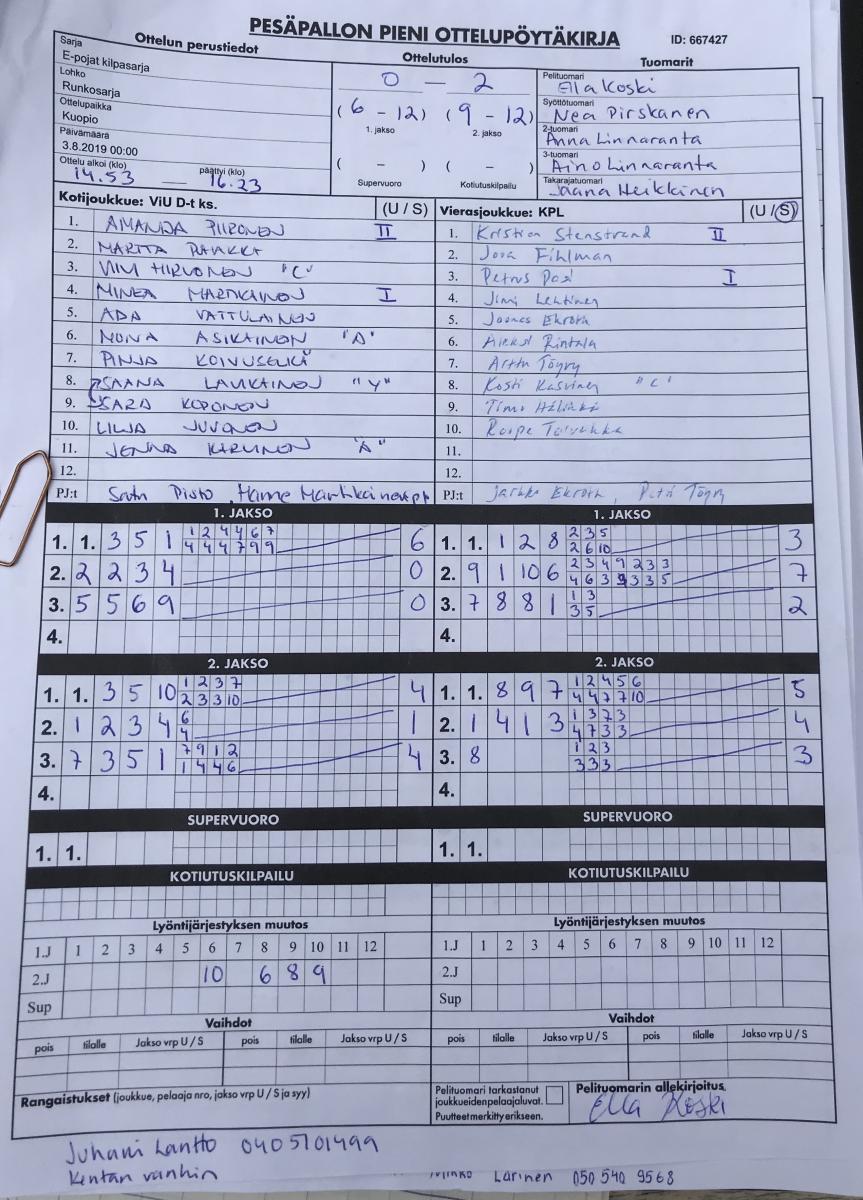 PESÄPALLON PIENI OTTELUPÖYTÄKIRJA ID: 667427
Ottelun perustiedot
Sarja
E-pojat kilpasarja
Lohko
Runkosarja
Ottelupaikka
Kuopio
Päivämäärä
3.8.2019 00:00
Ottelu alkoi (klo) päättyi (klo)
14.53 — 16.23
Ottelutulos
0 — 2
(6 - 12) (9 - 12)
1. jakso 2. jakso
( - ) ( - )
Supervuoro Kotiutuskilpailu
Tuomarit
Pelituomari
Ella Koski
Syöttötuomari
Nea Pirskanen
2-tuomari
Anna Linnaranta
3-tuomari
Aino Linnaranta
Takarajatuomari
Jaana Heikkinen
Kotijoukkue: ViU D-t ks. (U / S)
1. AMANDA PIIRONEN II
2. MARTTA
3. VIIVI HIRVONEN "C"
4. MINEA MARTIKAINEN I
5. ADA VATTULAINEN
6. NONA ASIKAINEN "A"
7. PINJA KOIVUSELKÄ
8. SAANA LAUKAINEN "Y"
9. SARA KOPONEN
10. LILJA JUVONEN
11. JENNA KARVINEN "A"
12.
PJ:t Satu Pisto, Hanne
Vierasjoukkue: KPL (U / S)
1. Kristian Stenstrand II
2. Joona Fihlman
3. Petrus Pasi I
4. Jimi Lehtinen
5. Joonas Ekroth
6. Aleksi Rintala
7. Arttu Töyry
8. Kosti Kasvinen "C"
9. Timo
10. Roope
11.
12.
PJ:t Jarkko Ekroth, Petri Töyry
1. JAKSO
1. 1. 3 5 1 1 2 4 4 6 7 6
4 4 4 7 9 9
2. 2 2 3 4 0
3. 5 5 6 9 0
4.
1. JAKSO
1. 1. 1 2 8 2 3 5 3
2 6 10
2. 9 1 10 6 2 3 4 9 2 3 3 7
4 6 3 9 3 3 5
3. 7 8 8 1 1 3 2
3 5
4.
2. JAKSO
1. 1. 3 5 10 1 2 3 7 4
2 3 3 10
2. 1 2 3 4 6 1
4
3. 7 3 5 1 7 9 1 2 4
1 4 4 6
4.
2. JAKSO
1. 1. 8 9 7 1 2 4 5 6 5
4 4 7 7 10
2. 1 4 1 3 1 3 7 3 4
4 7 3 3
3. 8 1 2 3 3
3 3 3
4.
SUPERVUORO
1. 1.
SUPERVUORO
1. 1.
KOTIUTUSKILPAILU
KOTIUTUSKILPAILU
Lyöntijärjestyksen muutos
1.J 1 2 3 4 5 6 7 8 9 10 11 12
2.J 10 6 8 9
Sup
Lyöntijärjestyksen muutos
1.J 1 2 3 4 5 6 7 8 9 10 11 12
2.J
Sup
Vaihdot
pois tilalle Jakso vrp U / S pois tilalle Jakso vrp U / S
Vaihdot
pois tilalle Jakso vrp U / S pois tilalle Jakso vrp U / S
Rangaistukset (joukkue, pelaaja nro, jakso vrp U / S ja syy)
Pelituomari tarkastanut
joukkueidenpelaajaluvat.
Puutteetmerkitty erikseen.
Pelituomarin allekirjoitus,
Ella Koski
Juhani Lantto 0405701499
Kentän vanhin
Larinen 050 540 9568